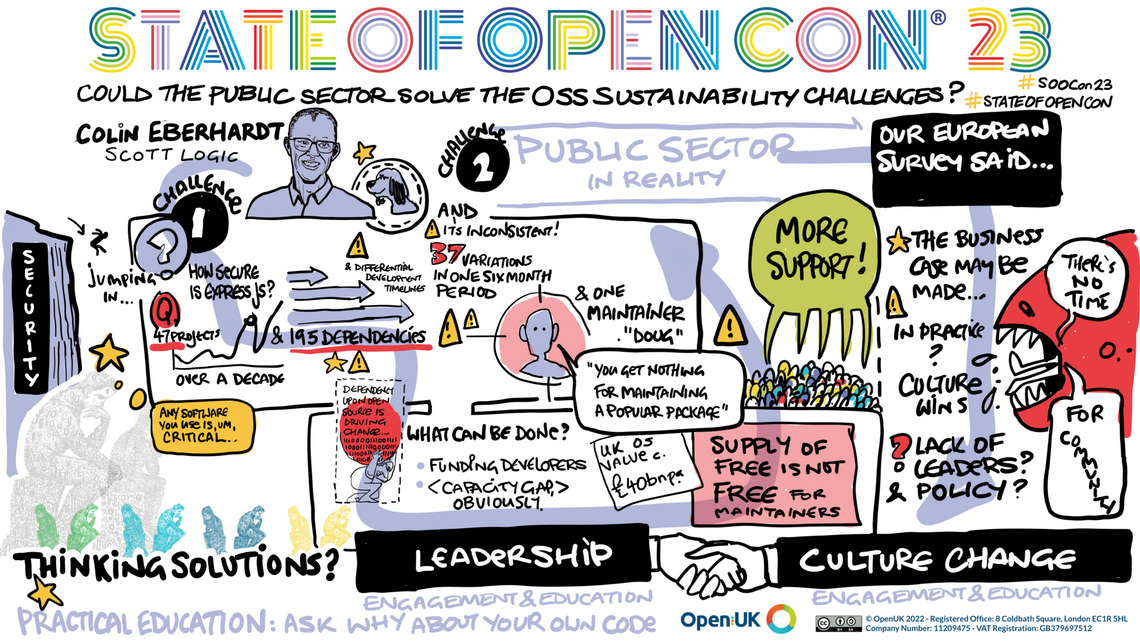 STATE OF OPEN CON® 23
COULD THE PUBLIC SECTOR SOLVE THE OSS SUSTAINABILITY CHALLENGES?
#SOOCon23
#STATEOFOPENCON
COLIN EBERHARDT
SCOTT LOGIC
CHALLENGE
1
CHALLENGE
2
PUBLIC SECTOR
IN REALITY
OUR EUROPEAN
SURVEY SAID...
SECURITY
JUMPING
IN...
?
HOW SECURE
IS EXPRESS JS?
Q
47 PROJECTS
& 195 DEPENDENCIES
OVER A DECADE
& DIFFERENTIAL
DEVELOPMENT
TIMELINES
AND
IT'S INCONSISTENT!
37 VARIATIONS
IN ONE SIX MONTH
PERIOD
& ONE
MAINTAINER
"DOUG"
"YOU GET NOTHING
FOR MAINTAINING
A POPULAR PACKAGE"
MORE
SUPPORT!
THE BUSINESS
CASE MAY BE
MADE...
IN PRACTICE
?
CULTURE
WINS
? LACK OF
LEADERS?
& POLICY?
THERE'S
NO
TIME
FOR
COMMUNITY
ANY SOFTWARE
YOU USE IS, UM,
CRITICAL...
DEPENDENT
UPON OPEN
SOURCE IS
DRIVING
CHANGE...
WHAT CAN BE DONE?
• FUNDING DEVELOPERS
• <CAPACITY GAP,>
OBVIOUSLY.
UK OS
VALUE c.
£40bnpa
SUPPLY OF
FREE IS NOT
FREE FOR
MAINTAINERS
THINKING SOLUTIONS?
LEADERSHIP
CULTURE CHANGE
ENGAGEMENT & EDUCATION
ENGAGEMENT & EDUCATION
PRACTICAL EDUCATION: ASK WHY ABOUT YOUR OWN CODE
Open:UK
cc BY SA
© OpenUK 2022 - Registered Office: 8 Coldbath Square, London EC1R 5HL
Company Number: 11209475 - VAT Registration: GB379697512